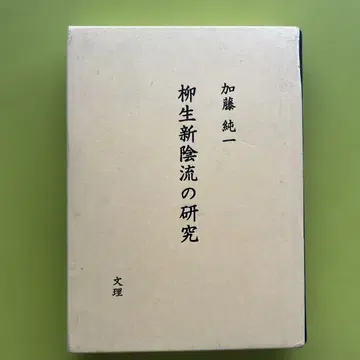 加藤 純一
柳生新陰流の研究
文理